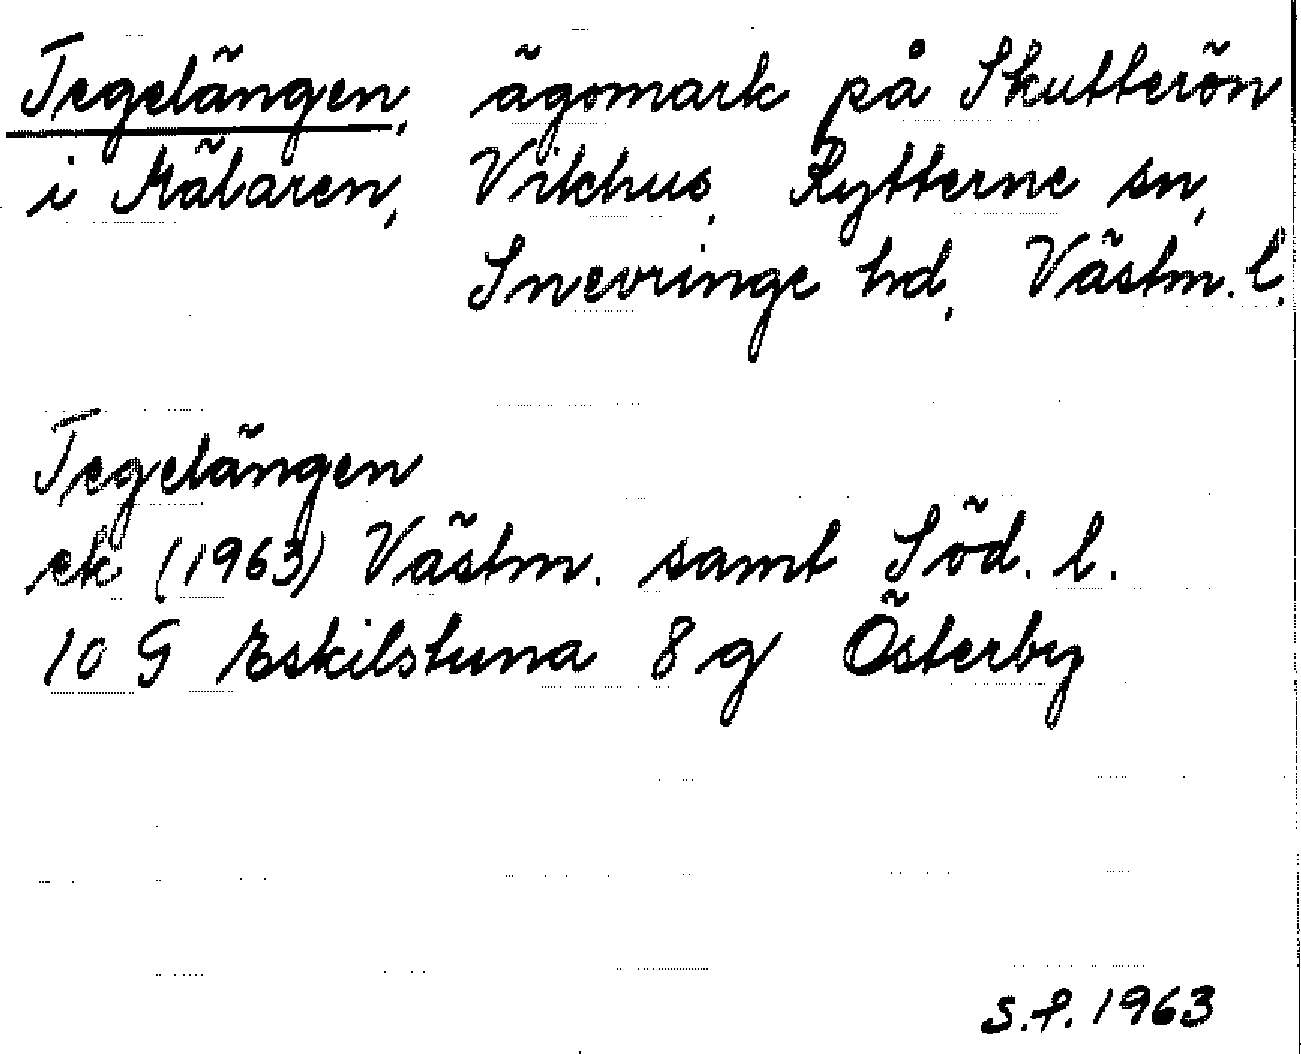 Tegelängen, ägomark på Skutterön
i Mälaren, Vikhus, Rytterne sn,
Snevringe hd, Västm. l.
Tegelängen
ek (1963) Västm. samt Söd. l.
10 G Eskilstuna 8 g Österby
S.F. 1963